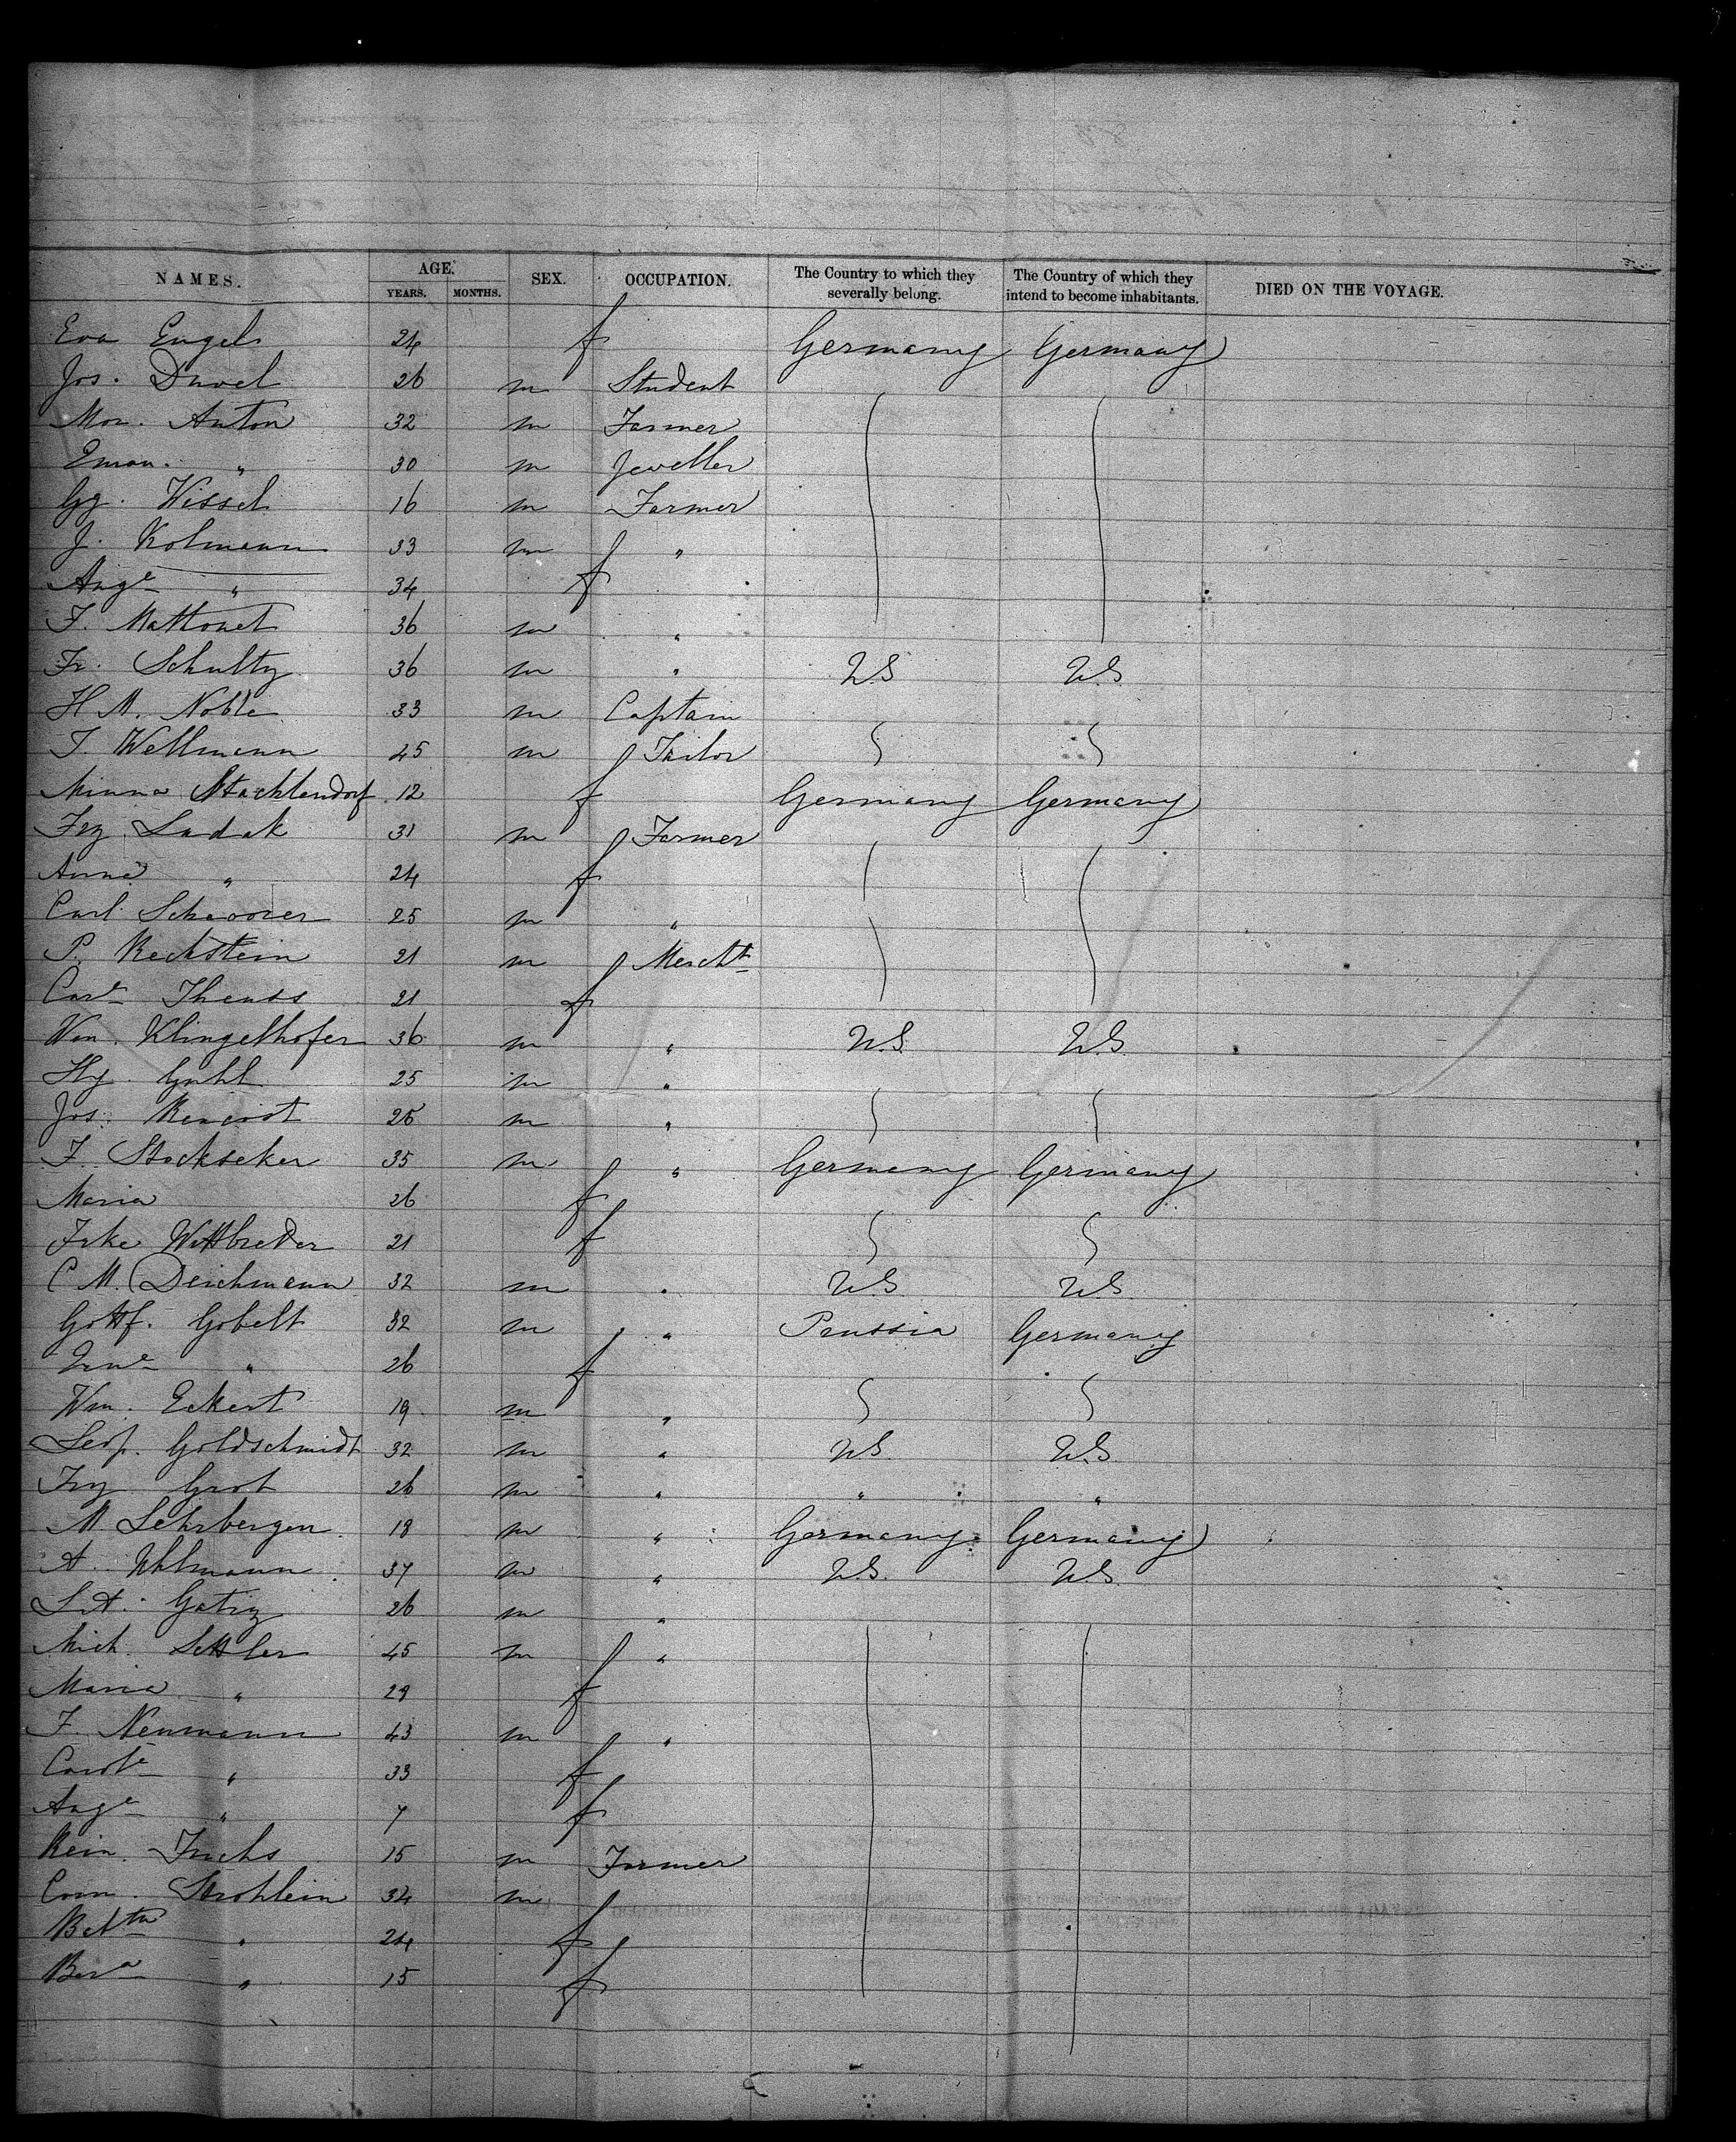 NAMES. AGE. YEARS. MONTHS. SEX. OCCUPATION. The Country to which they severally belong. The Country of which they intend to become inhabitants. DIED ON THE VOYAGE.
Eva Engels 24 f Germany Germany
Jos. Duvel 26 m Student
Mon. Anton 32 m Farmer
Eman. " 30 m Jeweller
Gg. Wissel 16 m Farmer
J. Kolmann 33 m "
Auge " 34 f
F. Mattonet 36 m "
Fr. Schultz 36 m " U.S U.S.
H M. Noble 33 m Captain
T. Wellmann 45 m Tailor
Minna Stachlendorf 12 f Germany Germany
Frz. Ladak 31 m Farmer
Anna " 24 f
Carl 25 m "
P. Rechstein 21 m Mercht
Care Theuss 21 f
Wm. Klingelhofer 36 m " U.S. U.S.
Hy. Guhl 25 m "
Jos. 26 m "
F. Stockseker 35 m " Germany Germany
Maria 26 f
Frke Wittbreder 21 f
C M. Deichmann 32 m " U.S. U.S.
Gottf. Gobelt 32 m " Prussia Germany
" 26 f
Wm. Eckert 19 m "
Leop. Goldschmidt 32 m " U.S. U.S.
Frz Grot 26 m " " "
M. Lehrbergen 18 m " Germany Germany
A. Uhlmann 37 m " U.S. U.S.
26 m "
Mich. Settler 45 m "
Maria " 29 f
F. Neumann 43 m "
Carole " 33 f
Auge " 7 f
Rein. Fuchs 15 m Farmer
Corn. Strohlein 34 m
" 24 f
" 15 f